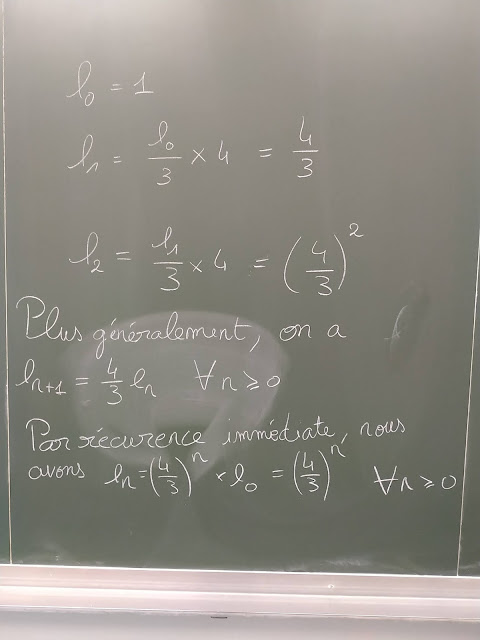 l₀ = 1
l₁ = l₀/3 × 4 = 4/3
l₂ = l₁/3 × 4 = (4/3)²
Plus généralement, on a
lₙ₊₁ = 4/3 lₙ ∀n ≥ 0
Par récurence immédiate, nous
avons lₙ = (4/3)ⁿ × l₀ = (4/3)ⁿ ∀n ≥ 0